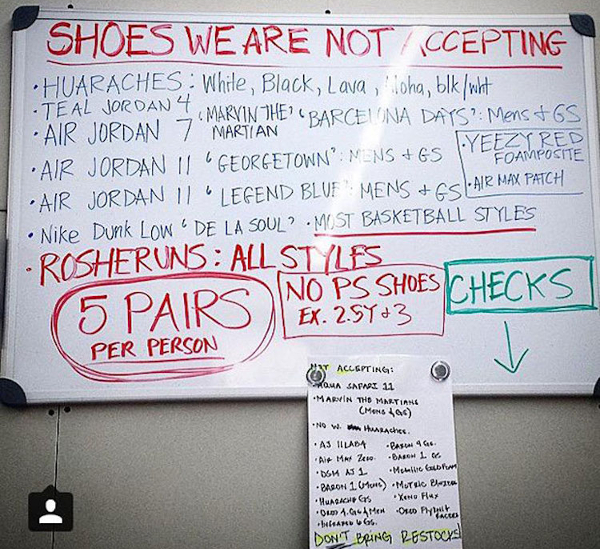 SHOES WE ARE NOT ACCEPTING
• HUARACHES: White, Black, Lava, Aloha, blk/wht
• TEAL JORDAN 4
• AIR JORDAN 7 'MARVIN THE MARTIAN' 'BARCELONA DAYS': Mens + GS
• AIR JORDAN 11 "GEORGETOWN": MENS + GS
• AIR JORDAN 11 "LEGEND BLUE": MENS + GS
• YEEZY RED FOAMPOSITE
• AIR MAX PATCH
• Nike Dunk Low "DE LA SOUL" • MOST BASKETBALL STYLES
• ROSHERUNS: ALL STYLES
5 PAIRS
PER PERSON
NO PS SHOES
EX. 2.5Y + 3
CHECKS
NOT ACCEPTING:
• AQUA SAFARI 11
• MARVIN THE MARTIANS
(MENS & GS)
• NO W. HUARACHES.
• AJ 11LAB4
• AIR MAX ZERO.
• DSM AJ 1
• BARON 1 (MENS)
• HUARACHE GS
• OREO 4. GS & MEN
• INFRARED 6 GS.
• BARON 9 GS.
• BARON 1 GS
• METALLIC GOLD FOAM
• XENO FLUX
• OREO FLYKNIT RACERS
DON'T BRING RESTOCKS!